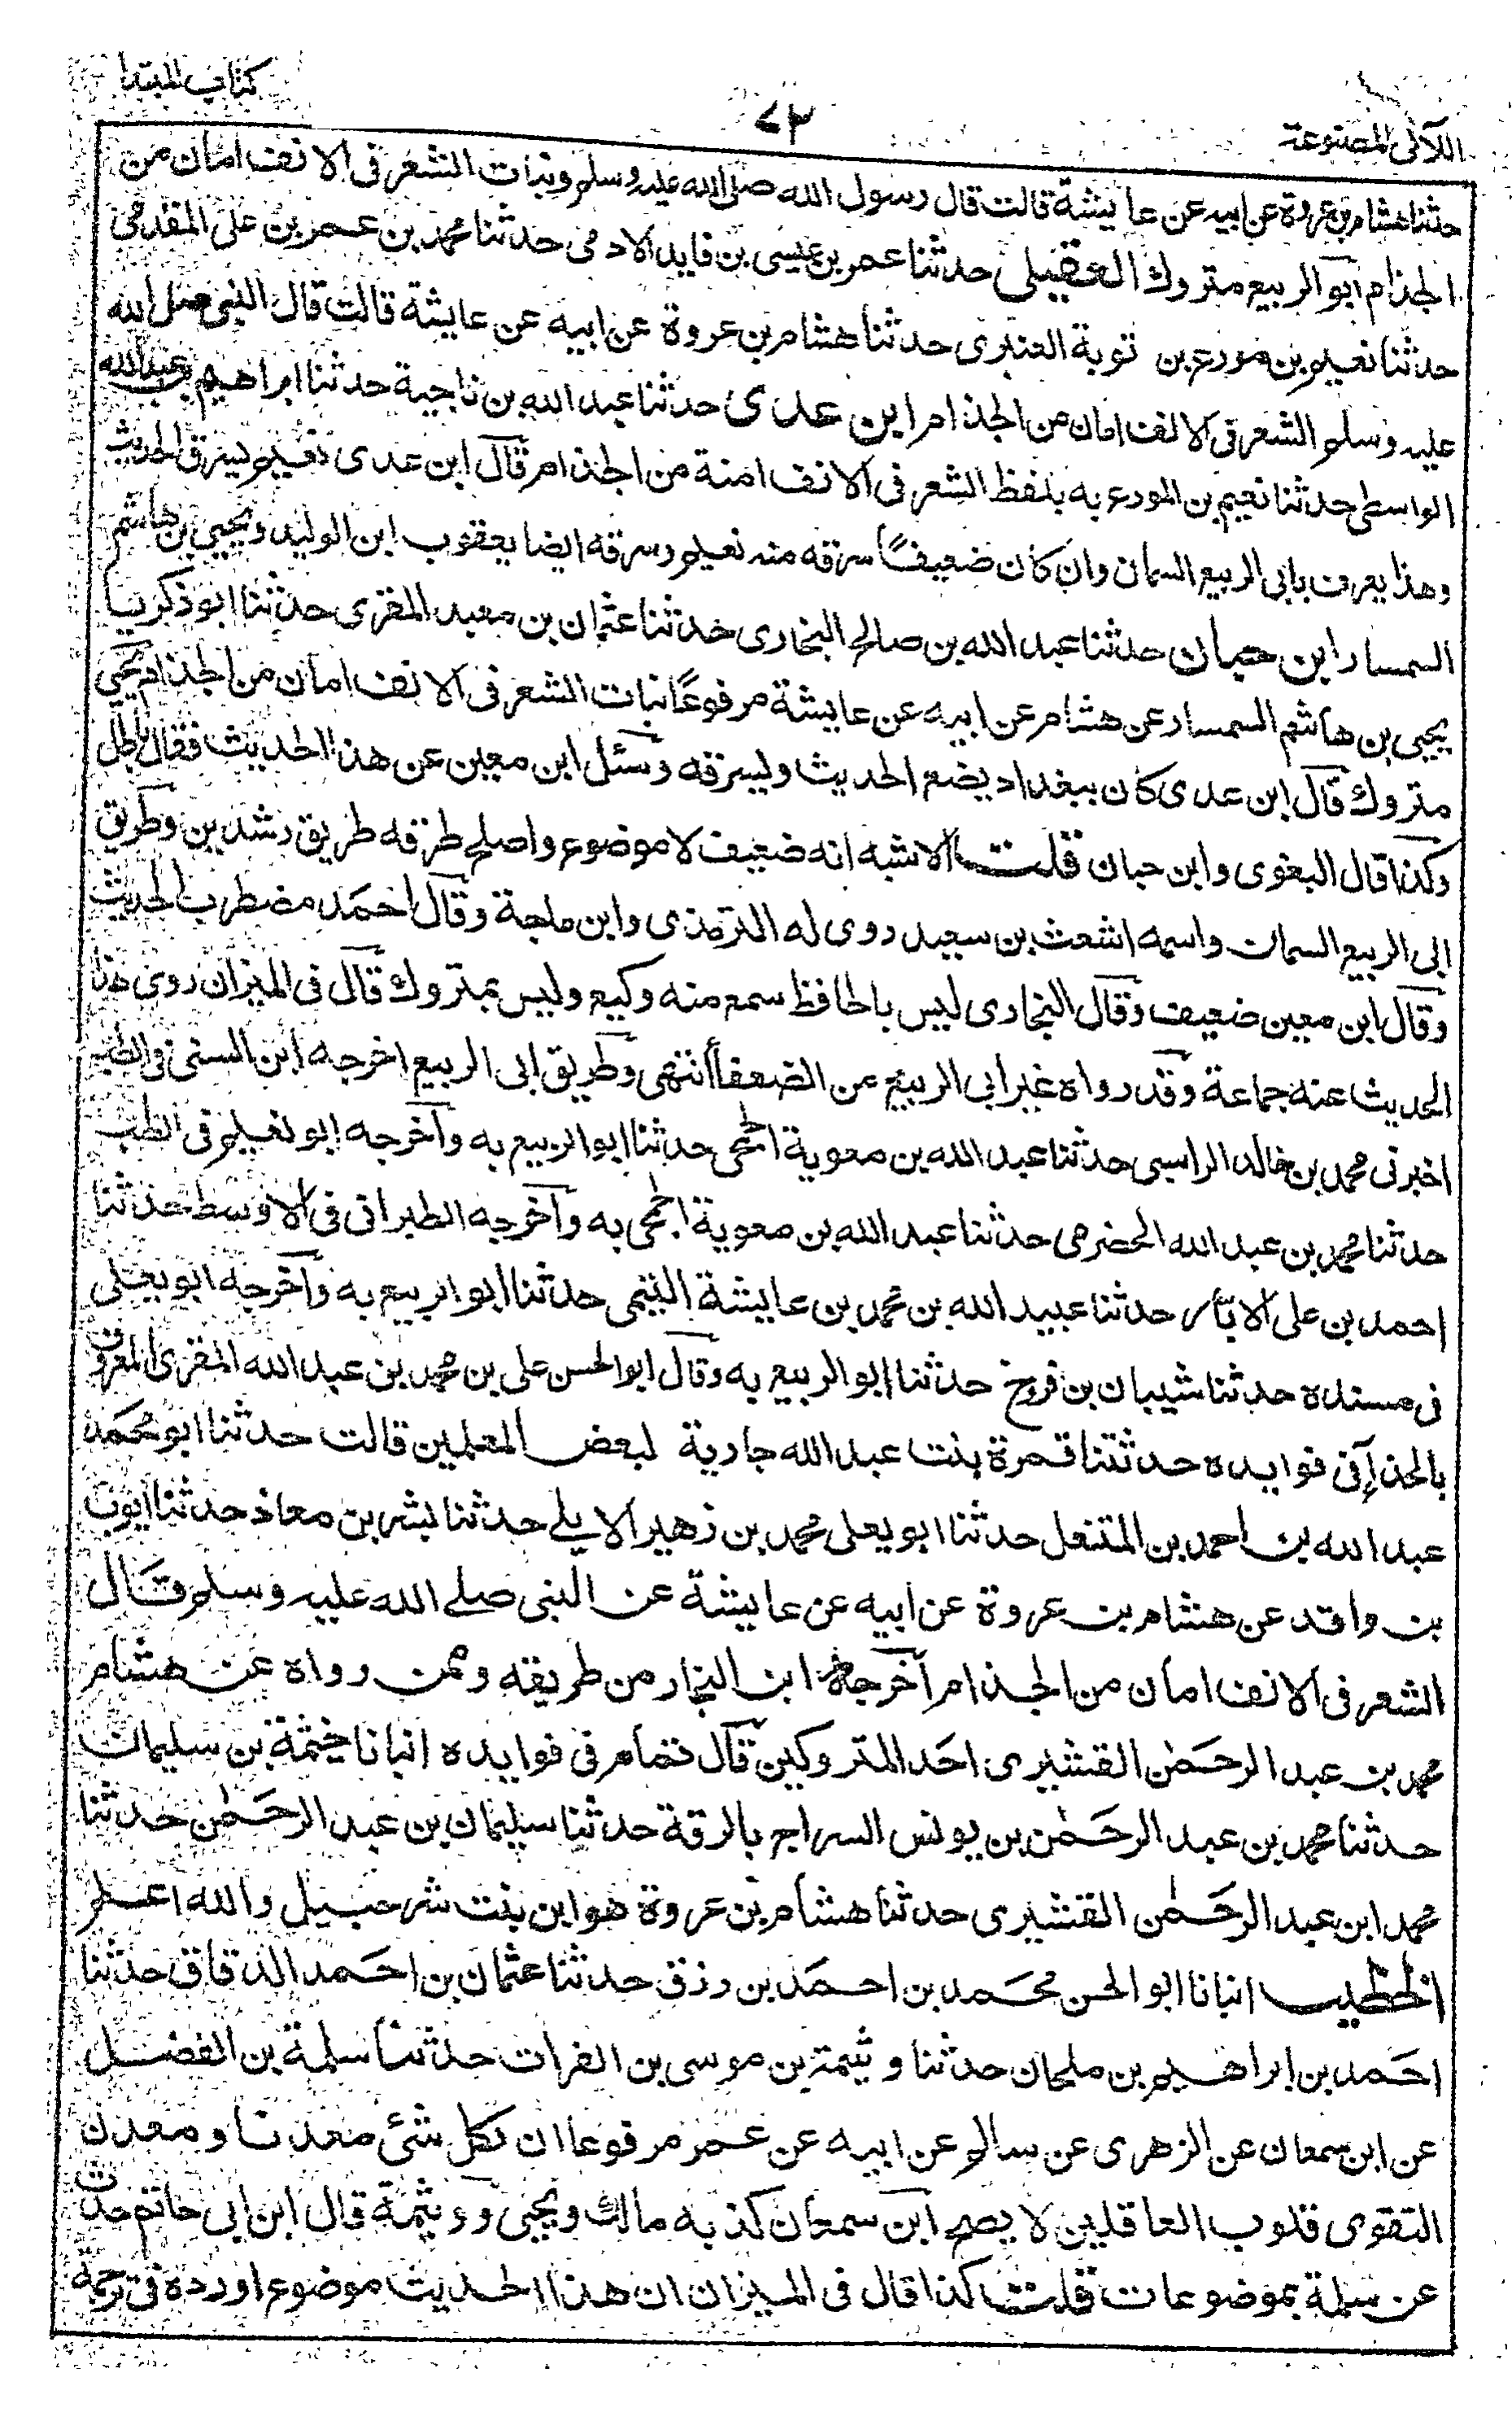 اللآلى المصنوعة
٧٣
كتاب المبتدا
حدثنا هشام بن عروة عن ابيه عن عايشة قالت قال رسول الله صلى الله عليه وسلم ونبات الشعر فى الانف امان من
الجذام ابو الربيع متروك العقيلى حدثنا عمر بن عيسى بن فايد الادمى حدثنا محمد بن عمر بن على المقدمى
حدثنا نعيم بن مورع بن توبة العنبرى حدثنا هشام بن عروة عن ابيه عن عايشة قالت قال النبى صلى الله
عليه وسلم الشعر فى الانف امان من الجذام ابن عدى حدثنا عبد الله بن ناجية حدثنا ابراهيم بن عبد الله
الواسطى حدثنا نعيم بن المورع به بلفظ الشعر فى الانف امنة من الجذام قال ابن عدى نعيم يسرق الحديث
وهذا يعرف بابى الربيع السمان وان كان ضعيفًا سرقه منه نعيم وسرقه ايضا يعقوب ابن الوليد ويحيى بن هاشم
السمسار ابن حبان حدثنا عبد الله بن صالح البخارى حدثنا عثمان بن معبد المقرى حدثنا ابو ذكريا
يحيى بن هاشم السمسار عن هشام عن ابيه عن عايشة مرفوعًا نبات الشعر فى الانف امان من الجذام يحيى
متروك قال ابن عدى كان ببغداد يضع الحديث وليسرقه وسئل ابن معين عن هذا الحديث فقال باطل
وكذا قال البغوى وابن حبان قلت الاشبه انه ضعيف لا موضوع واصلح طرقه طريق رشدين وطريق
ابى الربيع السمان واسمه اشعث بن سعيد روى له الترمذى وابن ماجة وقال احمد مضطرب الحديث
وقال ابن معين ضعيف وقال البخارى ليس بالحافظ سمع منه وكيع وليس بمتروك قال فى الميزان روى هذا
الحديث عنه جماعة وقد رواه غير ابى الربيع من الضعفأ انتهى وطريق ابى الربيع اخرجه ابن السنى فى الطب
اخبرنى محمد بن خالد الراسبى حدثنا عبد الله بن معوية الجمحى حدثنا ابو الربيع به وآخرجه ابو نعيم فى الطب
حدثنا محمد بن عبد الله الحضرمى حدثنا عبد الله بن معوية الجمحى به وآخرجه الطبرانى فى الاوسط حدثنا
احمد بن على الابار حدثنا عبيد الله بن محمد بن عايشة التيمى حدثنا ابو الربيع به وآخرجه ابو يعلى
فى مسنده حدثنا شيبان بن فروخ حدثنا ابو الربيع به وقال ابو الحسن على بن محمد بن عبد الله المقرى المعروف
بالحذآ فى فوايده حدثتنا قمرة بنت عبد الله جارية لبعض المعلمين قالت حدثنا ابو محمد
عبد الله بن احمد بن المتنعل حدثنا ابو يعلى محمد بن زهير الايلى حدثنا بشر بن معاذ حدثنا ايوب
بن واقد عن هشام بن عروة عن ابيه عن عايشة عن النبى صلى الله عليه وسلم قال
الشعر فى الانف امان من الجذام آخرجه ابن النجار من طريقه وممن رواه عن هشام
محمد بن عبد الرحمٰن القشيرى احد المتروكين قال تمام فى فوايده انبانا خيثمة بن سليمان
حدثنا محمد بن عبد الرحمٰن بن يونس السراج بالرقة حدثنا سليمان بن عبد الرحمٰن حدثنا
محمد ابن عبد الرحمٰن القشيرى حدثنا هشام بن عروة هو ابن بنت شرحبيل والله اعلم
الخطيب انبانا ابو الحسن محمد بن احمد بن رزق حدثنا عثمان بن احمد الدقاق حدثنا
احمد بن ابراهيم بن ملحان حدثنا وثيمة بن موسى بن الفرات حدثنا سلمة بن الفضل
عن ابن سمعان عن الزهرى عن سالم عن ابيه عن عمر مرفوعا ان لكل شئ معدنا ومعدن
التقوى قلوب العاقلين لا يصح ابن سمعان كذبه مالك ويحيى ووثيمة قال ابن ابى حاتم حدث
عن سلمة بموضوعات قلت كذا قال فى الميزان ان هذا الحديث موضوع اورده فى ترجمة